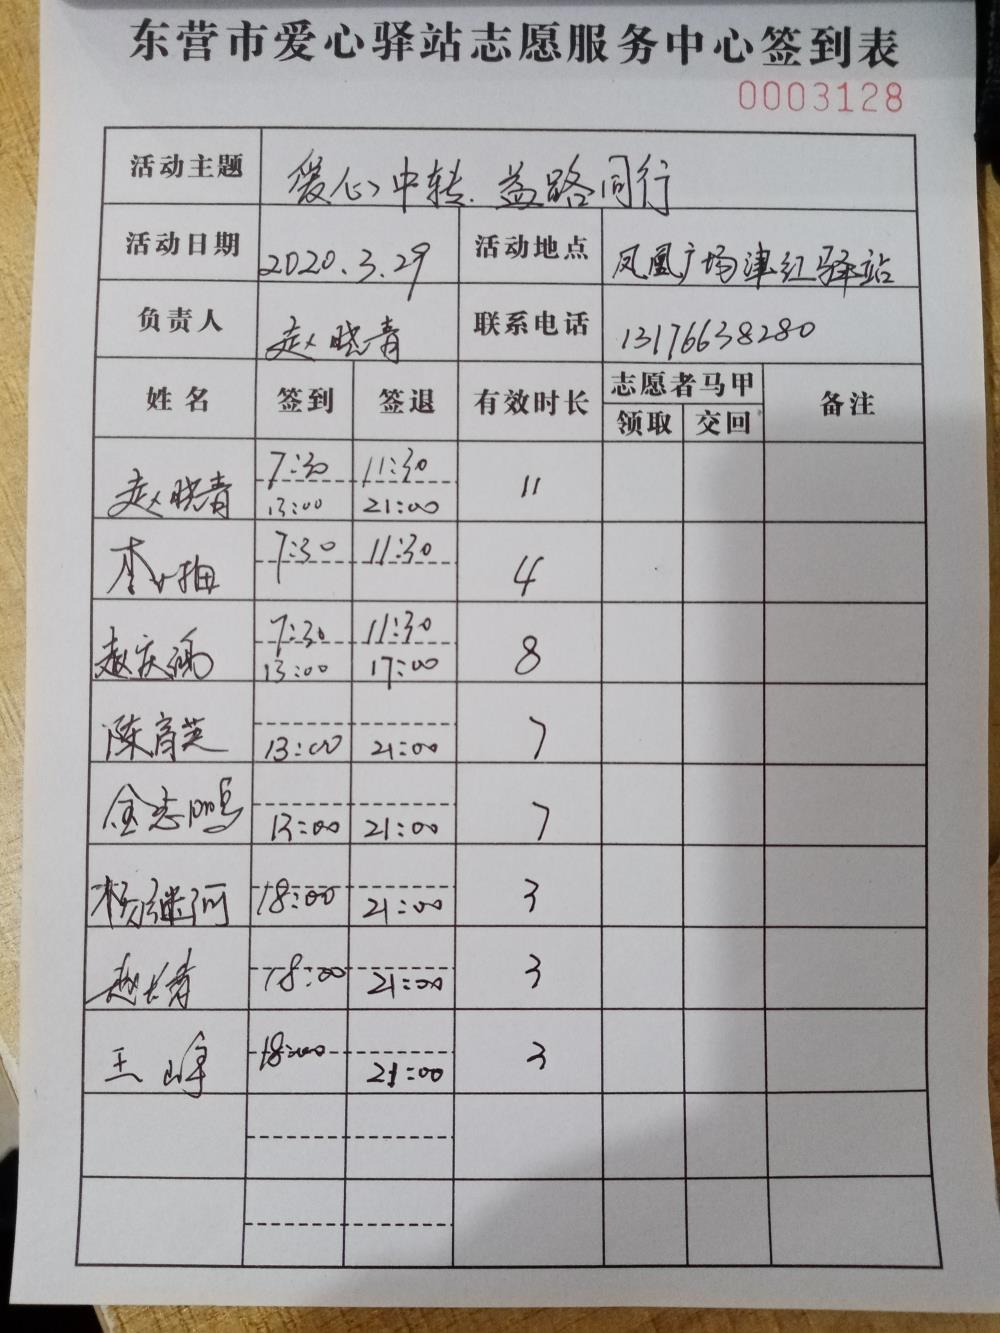 东营市爱心驿站志愿服务中心签到表
0003128
活动主题 爱心中转.益路同行
活动日期 2020.3.29 活动地点 凤凰广场津红驿站
负责人 赵晓青 联系电话 13176638280
姓名 签到 签退 有效时长 志愿者马甲 备注
领取 交回
7:30 11:30
赵晓青 13:00 21:00 11
7:30 11:30
李 4
7:30 11:30
赵庆 13:00 17:00 8
陈育英 13:00 21:00 7
金志鹏 13:00 21:00 7
杨继河 18:00 21:00 3
赵长青 18:00 21:00 3
王峰 18:00 21:00 3